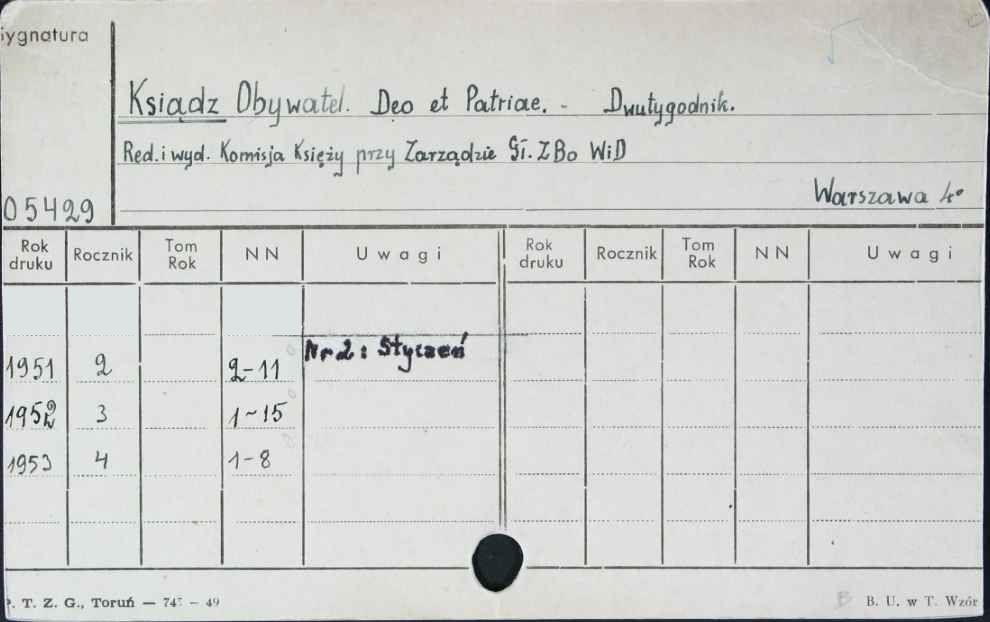 Sygnatura
Ksiądz Obywatel. Deo et Patriae. - Dwutygodnik.
Red. i wyd. Komisja Księży przy Zarządzie Gł. ZBo WiD
05429
Warszawa 4°
Rok druku Rocznik Tom Rok NN Uwagi Rok druku Rocznik Tom Rok NN Uwagi
Nr 2: Styczeń
1951 2 2-11
1952 3 1-15
1953 4 1-8
P. T. Z. G., Toruń — 745 - 49
B. U. w T. Wzór